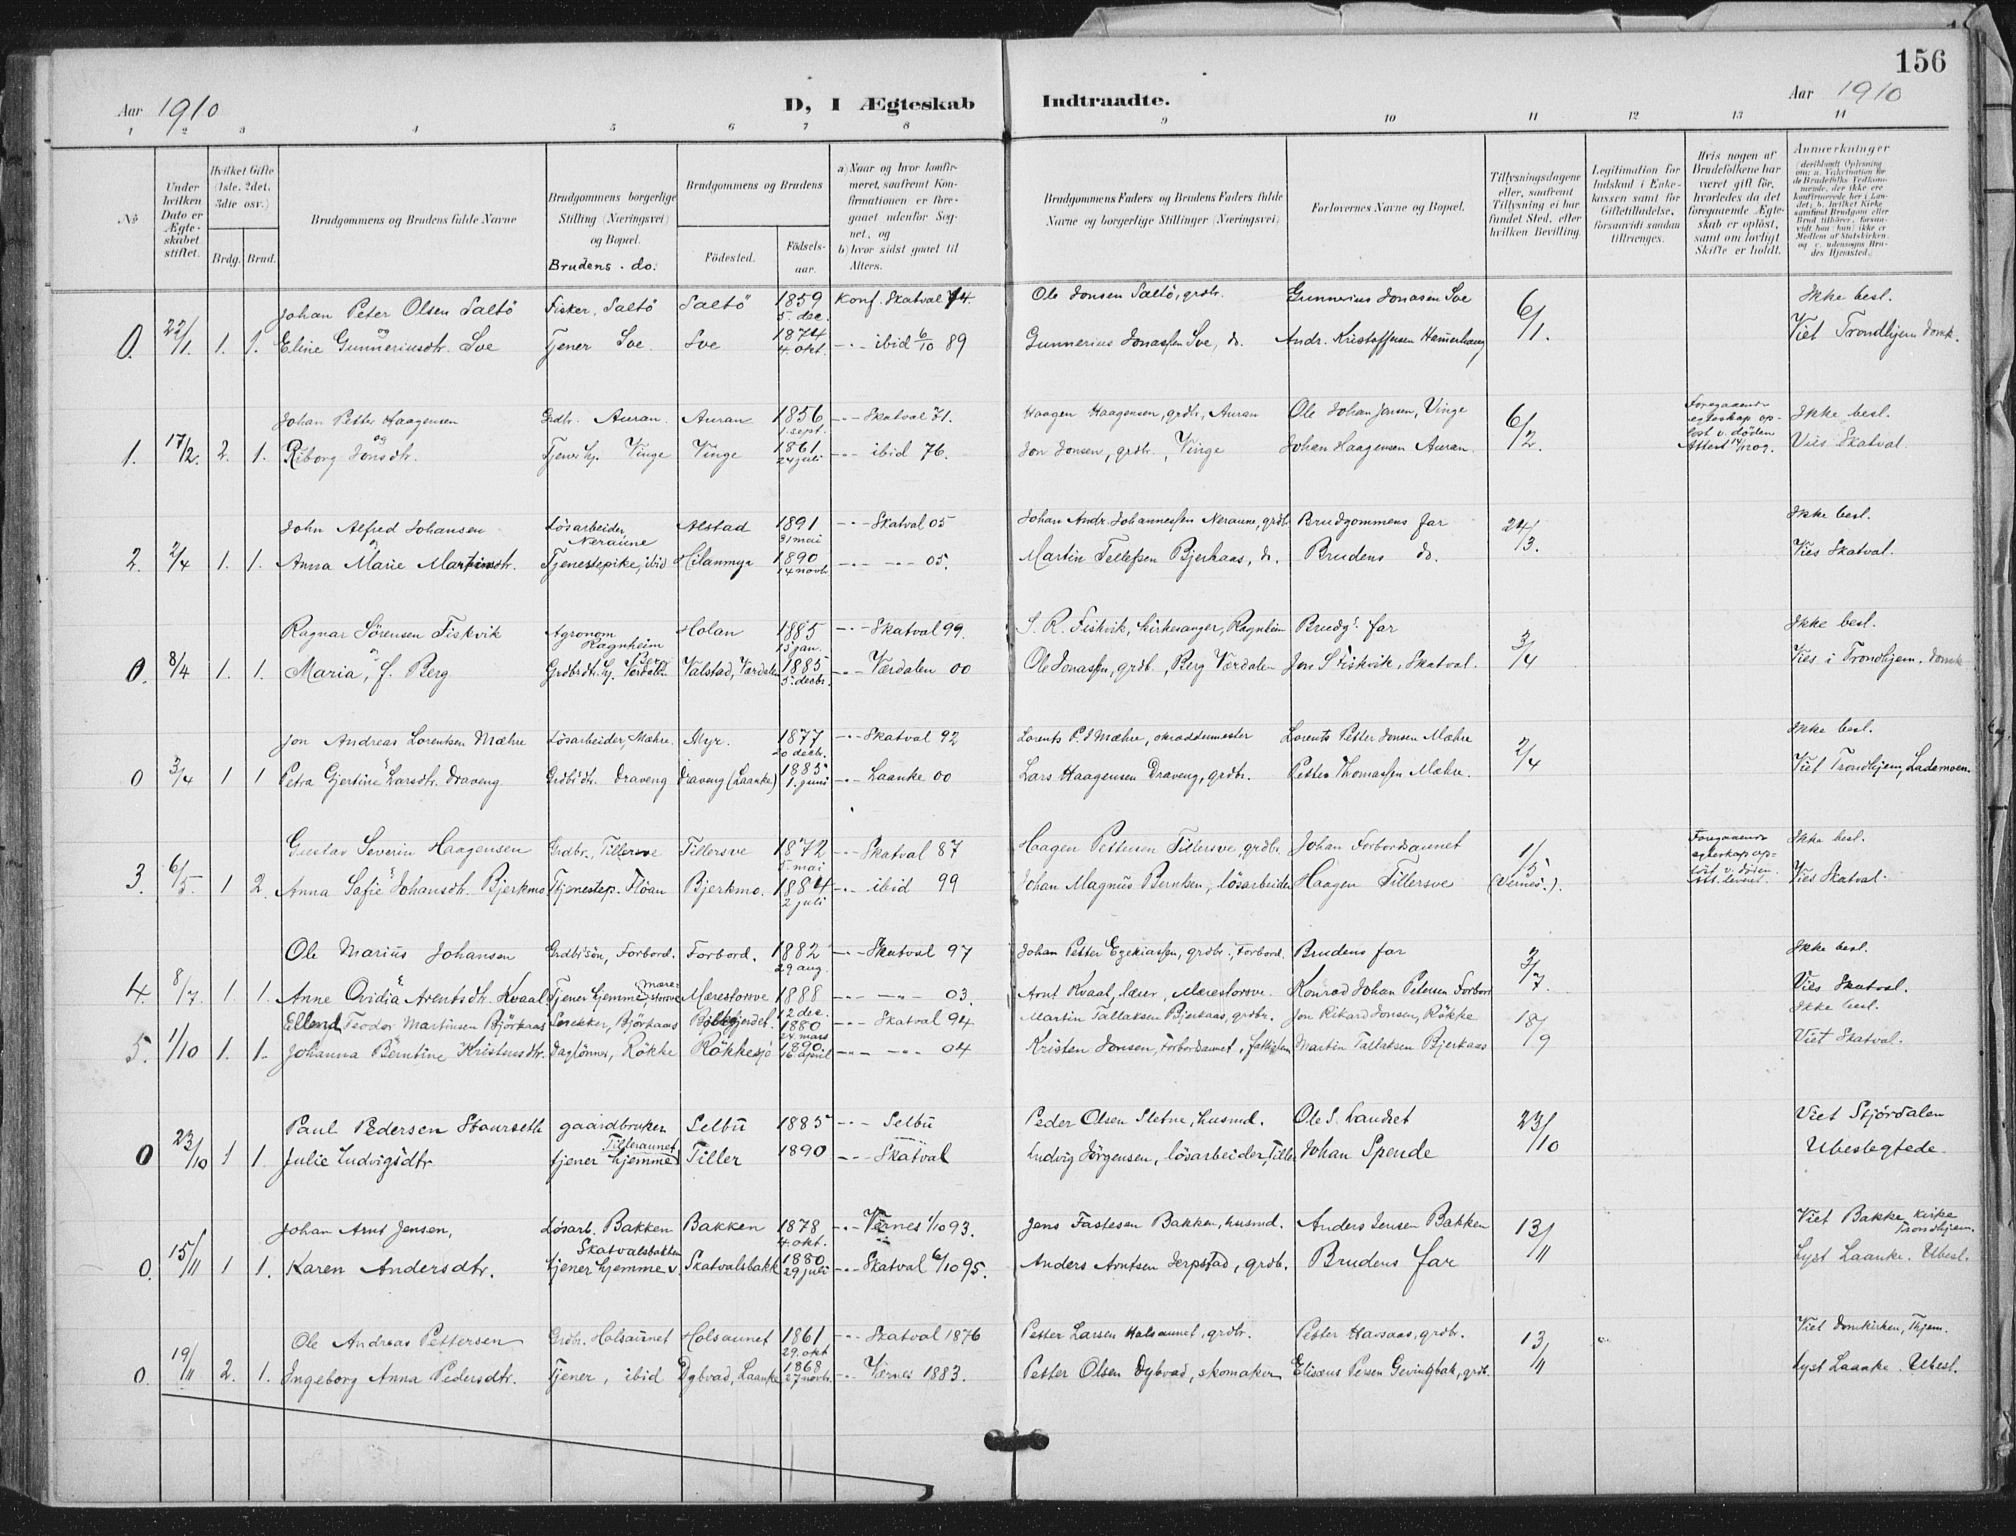 156
Aar 1910
D, I Ægteskab Indtraadte.
Aar 1910
1 2 3 4 5 6 7 8 9 10 11 12 13 14
No
Under hvilken Dato er Ægteskabet stiftet.
Hvilket Gifte (1ste, 2det, 3die osv.)
Brdg. Brud.
Brudgommens og Brudens fulde Navne
Brudgommens borgerlige Stilling (Næringsvei) og Bopæl.
Brudens do.
Brudgommens og Brudens
Fødested.
Fødselsaar.
a) Naar og hvor konfirmeret, saafremt Konfirmationen er foregaaet udenfor Sognet, og
b) hvor sidst gaaet til Alters.
Brudgommens Faders og Brudens Faders fulde Navne og borgerlige Stillinger (Næringsvei)
Forlovernes Navne og Bopæl.
Tillysningsdagene eller, saafremt Tillysning ei har fundet Sted, efter hvilken Bevilling.
Legitimation for Indskud i Enkekassen samt for Giftetilladelse, forsaavidt saadan tiltrænges.
Hvis nogen af Brudefolkene har været gift før, hvorledes da det foregaaende Ægteskab er opløst, samt om lovligt Skifte er holdt.
Anmerkninger
Johan Peter Olsen Saltö Fisker, Saltö Saltö 1859 5. dec. Konf. Skatval 74 Ole Jonsen Saltö, grdbr. Gunnerius Jonasen Sve 6/1. Ikke besl.
0. 22/1 1. 1. og Eline Gunneriusdtr. Sve Tjener Sve. Sve 1874 4 okt. -"- ibid 6/10 89 Gunnerius Jonassen Sve, do. Andr. Kristoffersen Hamerhaug Viet Trondhjem Domk.
Johan Petter Haagensen Grdbr. Auran. Auran 1856 1. sept. -"- Skatval 71. Haagen Haagensen, grdb, Auran Ole Johan Jensen, Vinge 6/2 Foregaaende egteskap opløst v. døden Attest 14/1209. Ikke besl.
1. 17/2. 2. 1. og Riborg Jonsdtr. Tjener hj. Vinge Vinge 1861 24 juli -"- ibid 76. Jon Jonsen, grdb., Vinge Johan Haagensen Auran. Vies Skatval.
John Alfred Johansen Løsarbeider Neraune Alstad 1891 31 mai -"- Skatval 05 Johan Andr. Johannessen Neraune, grdb. Brudgommens far 24/3. Ikke besl.
2. 2/4 1. 1. Anna Marie Martinsdtr. Tjenestepike, ibid Hilanmyr 1890 14 novbr -"- -"- 05. Martin Tellefsen Bjerkaas, do. Brudens do. Vies Skatval.
Ragnar Sørensen Fiskvik Agronom Ragnheim Holan 1885 15 jan. -"- Skatval 99. S. R. Fiskvik, kirkesanger, Ragnheim Brudgs. far 3/4 Ikke besl.
0. 8/4 1. 1. Maria, f. Berg Grdbrdtr. hj. Berg Værdalen Valstad, Værdalen 1885 5. decbr. -"- Værdalen 00 Ole Jonassen, grdb., Berg Værdalen Jon S Fiskvik, Skatval. Vies i Trondhjem. Domk
Jon Andreas Lorentsen Mæhre Løsarbeider, Mæhre. Myr. 1877 20 decbr. -"- Skatval 92 Lorents P. J Mæhre, skreddermester Lorents Petter Jonsen Mæhre 2/4 Ikke besl.
0 3/4 1 1 Petra Gjertine Larsdtr. Draveng Grdb'dtr. Draveng Draveng (Laanke) 1885 1. juni -"- Laanke 00 Lars Haagensen Draveng, grdbr. Petter Thomassen Mæhre. Viet Trondhjem, Lademoen
Gustav Severin Haagensen Grdbr., Tillersve Tillersve 1872 5. mai -"- Skatval 87 Haagen Pettersen Tillersve, grdbr. Johan Forbordsaunet 1/5 (Vernes.). Foregaaende egteskap opløst v. døden. Ikke besl.
3. 6/5 1 2. Anna Sofie Johansdtr. Bjerkmo Tjenestep. Flöan Bjerkmo. 1884 2 juli -"- ibid 99 Johan Magnus Berntsen, løsarbeider Haagen Tillersve Vies Skatval.
Ole Marius Johansen Grdb'sön, Forbord. Forbord. 1882 29 aug. -"- Skatval 97 Johan Petter Ezekiassen, grdbr., Forbord. Brudens far 3/7 Ikke besl.
4. 8/7 1. 1. Anne Ovidia Arentsdtr. Kvaal Tjener hjemme Mærestorsve Mærestorsve 1888 12 dec. -"- -"- 03. Arnt Kvaal, lærer, Mærestorsve. Konrad Johan Petersen Forbord Vies Skatval.
Ellend Teodor Martinsen Björkaas Snekker, Björkaas 1880 24. mars -"- Skatval 94 Martin Tallaksen Bjerkaas, grdbr. Jon Rikard Jonsen, Røkke 18/9 Ikke besl.
5. 1/10 1. 1. Johanna Berntine Kristensdtr. Dagløner, Røkke Røkkesjö 1890. 16 april -"- -"- 04 Kristen Jonsen, Forbordsaunet, fattiglem Martin Tallaksen Bjerkaas Viet Skatval.
Paul Pedersen Staurseth gaardbruker Selbu 1885 -"- Selbu Peder Olsen Sletne, husmd. Ole S. Laudset 23/10 Viet Stjördalen
0 23/10 1 1. Julie Ludvigsdtr tjener hjemme Tilleraunet Tiller 1890 -"- Skatval Ludvig Jörgensen, løsarbeider, Tiller Johan Spende Ubeslegtede.
Johan Arnt Jensen, Løsarb. Bakken Bakken 1878 4. okt. -"- Vernes 1/10 93. Jens Fastesen Bakken, husmd. Anders Jensen Bakken 13/11 Viet Bakke kirke Trondhjem.
0. 15/11 1 1. Karen Andersdtr. tjener hjemme v Skatvalsbakken Skatvalsbakk 1880 29 juli -"- Skatval 6/10 95. Anders Arntsen Jerpstad, grdb. Brudens far Lyst Laanke. Ubesl.
Ole Andreas Pettersen Grdbr. Holsaunet Holsaunet 1861 29. okt -"- Skatval 1876 Petter Larsen Halsaunet, grdbr. Petter Havsaas, grdbr. 13/11 Viet Domkirken, Thjem.
0. 19/11 2. 1. Ingeborg Anna Pedersdtr. Tjener, ibid Dybvad, Laanke 1868 27 novbr. -"- Værnes 1883. Petter Olsen Dybvad, skomaker Elisæus Persen Gevingbak, grdb. Lyst Laanke. Ubesl.